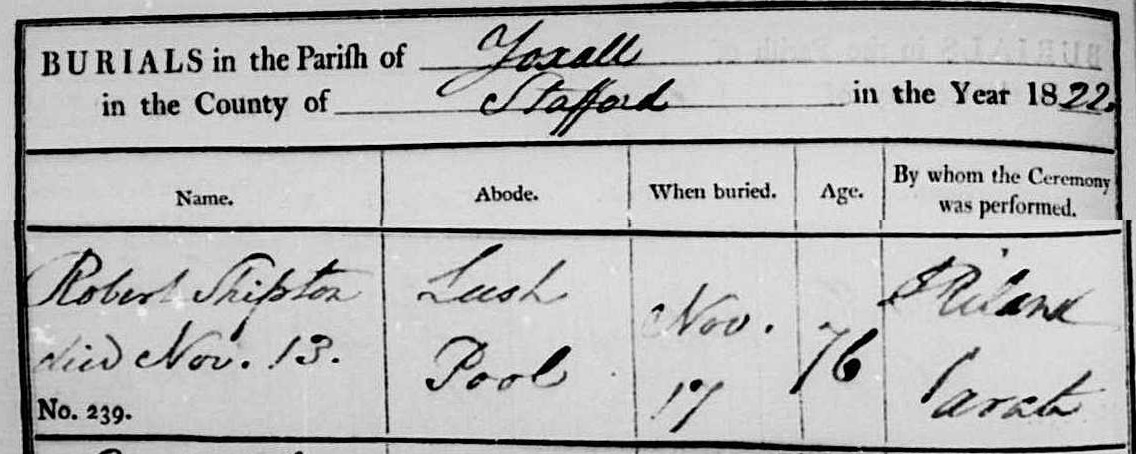 BURIALS in the Parish of Yoxall
in the County of Stafford in the Year 1822.
Name. Abode. When buried. Age. By whom the Ceremony was performed.
Robert Shipton Lush Nov. 76 J Riland
died Nov. 13. Pool 17 Curate
No. 239.